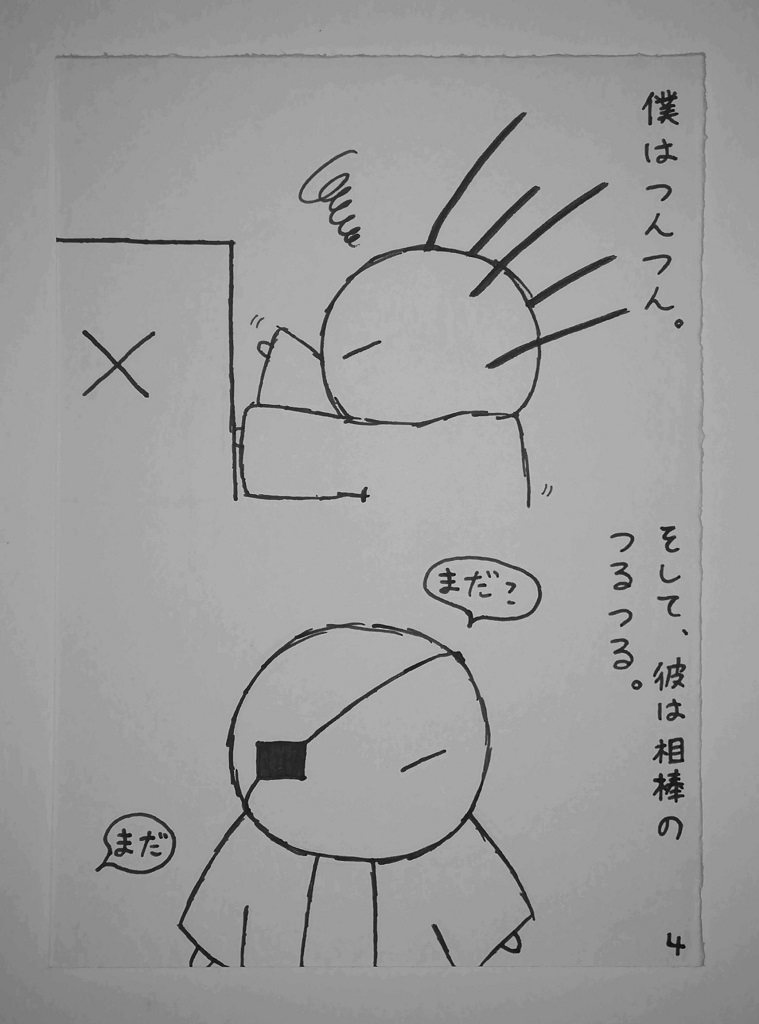 僕はつんつん。
そして、彼は相棒の
つるつる。
まだ？
まだ
4